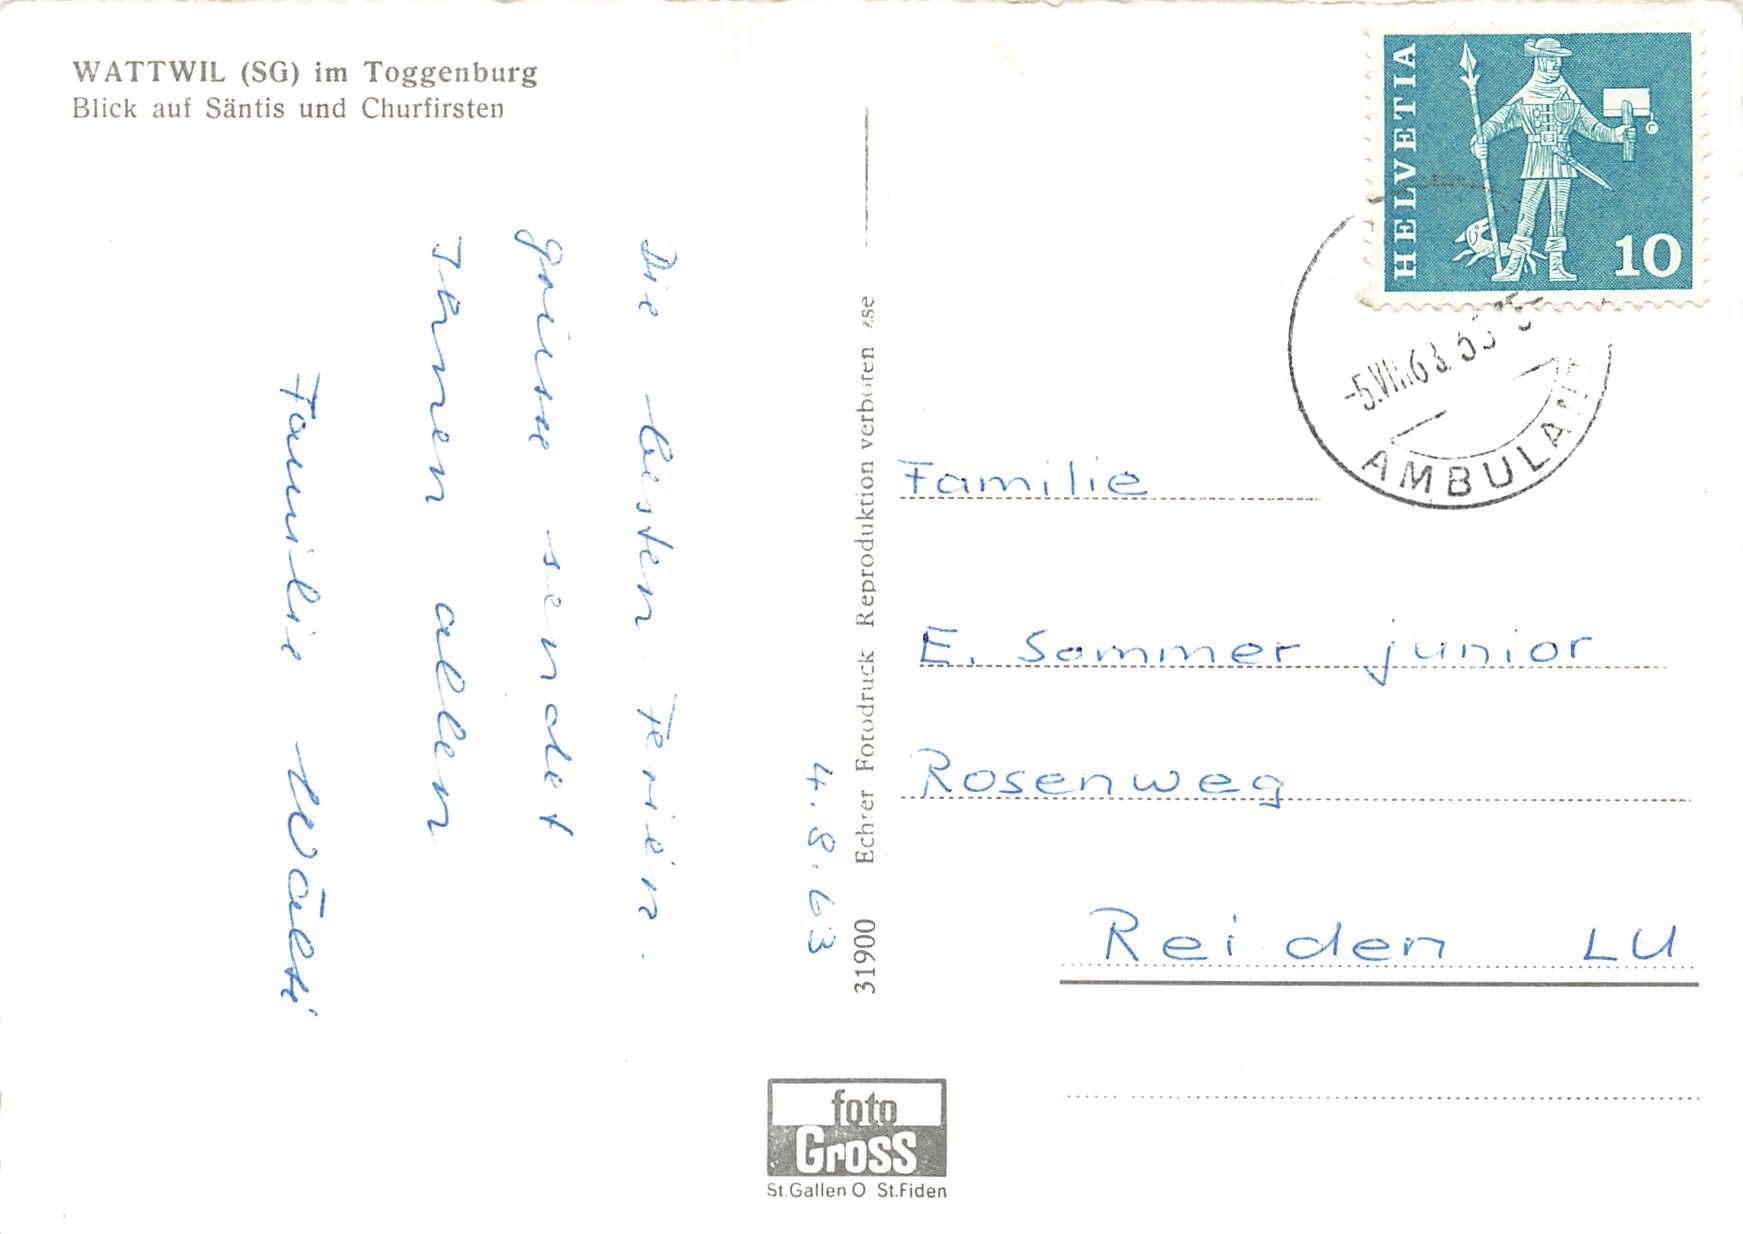 WATTWIL (SG) im Toggenburg
Blick auf Säntis und Churfirsten
4.8.63
Die besten Ferien.
grüsse sendet
Ihnen allen
Familie Wälti
31900 Echter Fotodruck Reproduktion verboten
HELVETIA
10
-5.VIII.63
AMBULANT
Familie
E. Sommer junior
Rosenweg
Reiden LU
foto
Gross
St.Gallen O St.Fiden